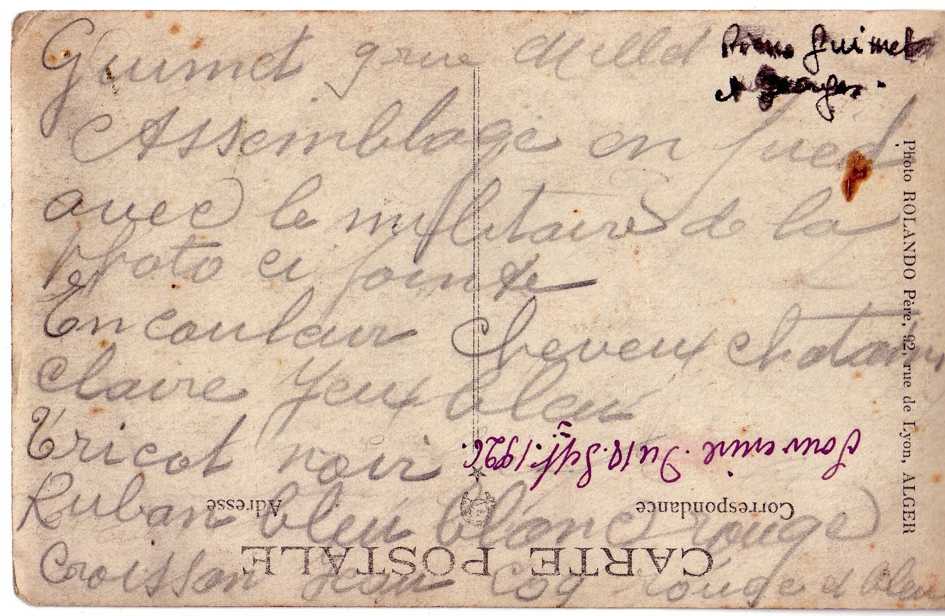 Guimet grue
Pierre Guimet
Assemblage en pied
avec le militaire de la
Photo ci jointe
En couleur Cheveux chatain
claire Yeux bleu
Tricot noir
Souvenir. Du 12. Sept. 1926.
Ruban bleu blanc rouge
Croissan Coq rouge et bleu
Photo ROLANDO Père, 92, rue de Lyon, ALGER
CARTE POSTALE
Correspondance
Adresse